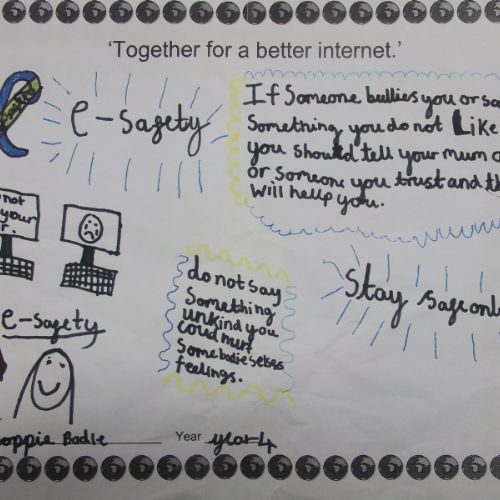 'Together for a better internet.'
e-safety
If someone bullies you or sa
something you do not Like
you should tell your mum o
or someone you trust and th
will hellp you.
not
your
r.
do not say
Something
unkind you
coud hurt
Somebodie selses
feelings.
Stay safe onl
e-safety
oppie Bodle Year year 4